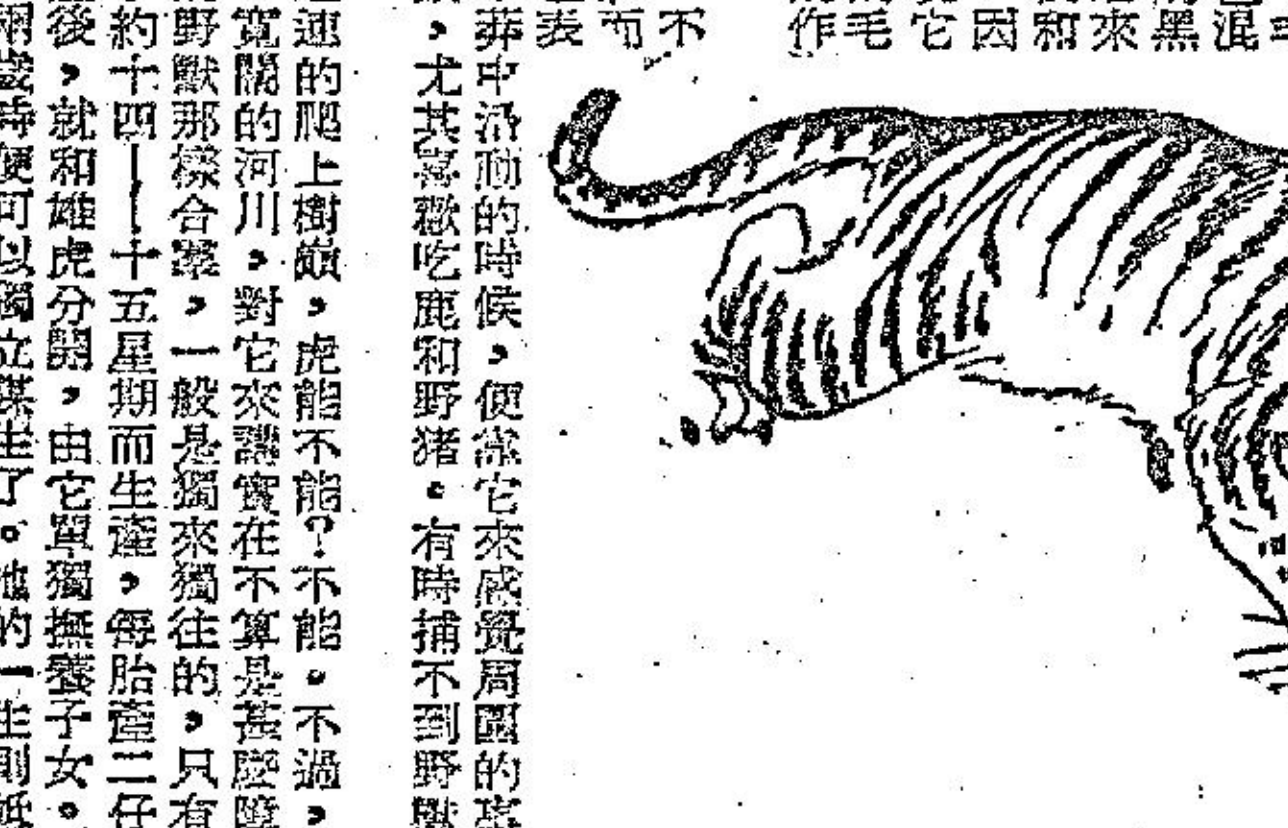 毛
混
黑
來
和
因
它
毛
作
不
而
表
莽中活動的時候，便靠它來感覺周圍的事
，尤其喜歡吃鹿和野猪。有時捕不到野獸
速的爬上樹巔，虎能不能？不能。不過，
寬闊的河川，對它來講實在不算是甚麼障
野獸那樣合羣，一般是獨來獨往的，只有
約十四——十五星期而生產，每胎產二仔
後，就和雄虎分開，由它單獨撫養子女。
歲時便可以獨立謀生了。牠的一生則